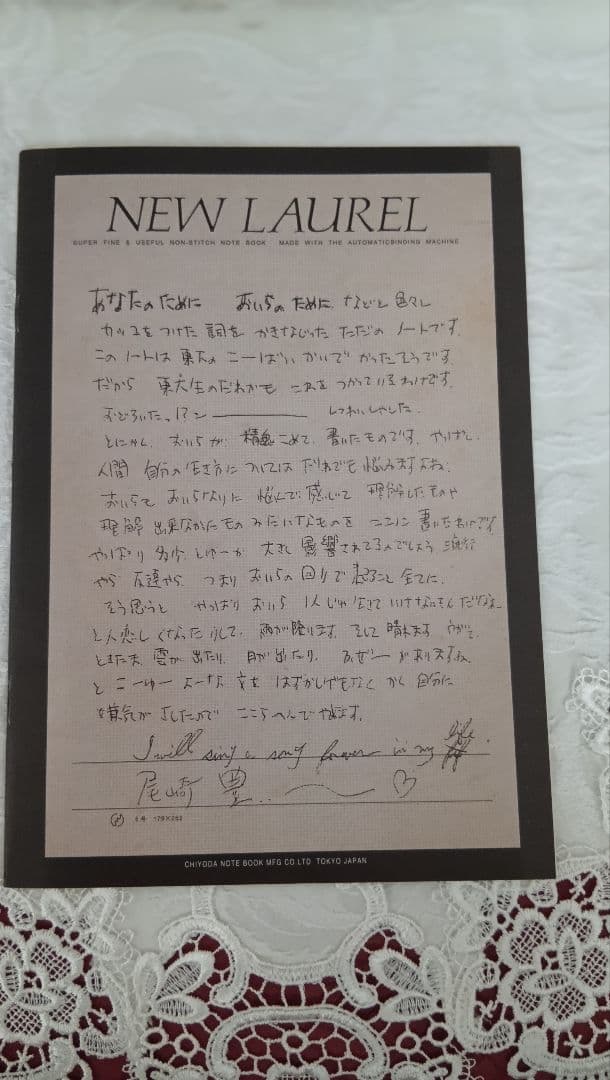 NEW LAUREL
SUPER FINE & USEFUL NON-STITCH NOTE BOOK MADE WITH THE AUTOMATICBINDING MACHINE
あなたのために おいらのために、などと色々と
カッコをつけた詞をかきなじった ただの ノートです。
このノートは東大の こーばい かいで かったそうです。
だから 東大生のだれかも これをつかっているわけです。
おどろいたっ!? しつれいしやした.
とにかく、おいらが、精魂こめて、書いたものです。やっぱし、
人間 自分の生き方については だれでも悩みますよね.
おいらも おいらなりに 悩んで、感じて 理解したものや
理解 出来なかたもの みたいなものを ここに 書いたわけです
やっぱり 多少 とゆーか 大きく 影響されてるんでしょう 流行
やら 友達やら、つまり おいらの回りで 起ること全てに.
そう思うと やっぱり おいら 1人じゃ 生きて いけないもんだなぁ
と人恋しくなったりして、雨が降ります。そして 晴れます
ときたま 雲が出たり、日が出たり、
と こーゆー よーな 文を はずかしげもなく かく自分に
嫌気がさしたので ここらへんでやめます。
I will sing a song forever in my life.
尾崎 豊..
5号 179×252
CHIYODA NOTE BOOK MFG CO.LTD TOKYO JAPAN